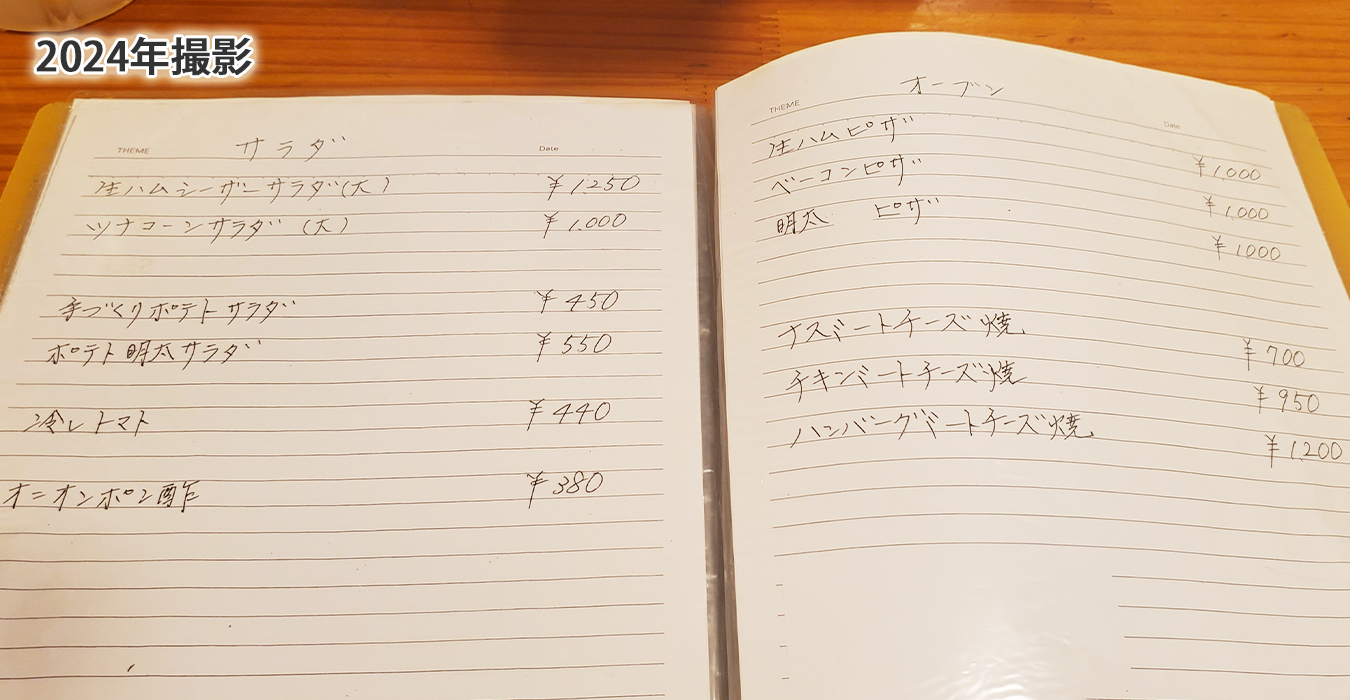 2024年撮影
THEME サラダ Date
生ハムシーザーサラダ(大) ¥1,250
ツナコーンサラダ(大) ¥1,000
手づくりポテトサラダ ¥450
ポテト明太サラダ ¥550
冷しトマト ¥440
オニオンポン酢 ¥380
THEME オーブン Date
生ハムピザ ¥1,000
ベーコンピザ ¥1,000
明太 ピザ ¥1,000
ナスミートチーズ焼 ¥700
チキンミートチーズ焼 ¥950
ハンバーグミートチーズ焼 ¥1,200